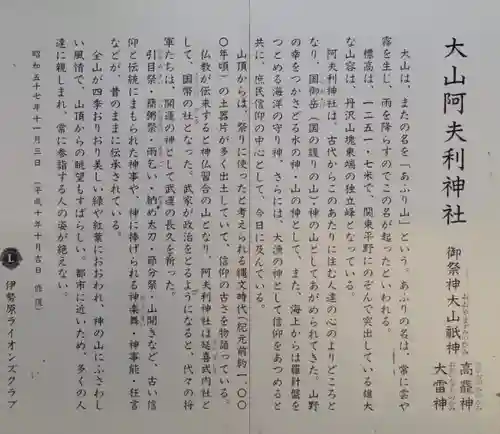 大山阿夫利神社
御祭神 大山祇神
高龗神
大雷神
大山は、またの名を「あふり山」という。あふりの名は、常に雲や
霧を生じ、雨を降らすのでこの名が起ったといわれる。
標高は、一二五一・七米で、関東平野にのぞんで突出している雄大
な山容は、丹沢山塊東端の独立峰となっている。
阿夫利神社は、古代からこのあたりに住む人達の心のよりどころと
なり、国御岳（国の護りの山）・神の山としてあがめられてきた。山野
の幸をつかさどる水の神、山の神として、また、海上からは羅針盤を
つとめる海洋の守り神、さらには、大漁の神として信仰をあつめると
共に、庶民信仰の中心として、今日に及んでいる。
山頂からは、祭りに使ったと考えられる縄文時代（紀元前約一、〇〇
〇年頃）の土器片が多く出土していて、信仰の古さを物語っている。
仏教が伝来すると神仏習合の山となり、阿夫利神社は延喜式内社と
して、国幣の社となった。武家が政治をとるようになると、代々の将
軍たちは、開運の神として武運の長久を祈った。
引目祭・筒粥祭・雨乞い・納め太刀・節分祭・山開きなど、古い信
仰と伝統にまもられた神事や、神に捧げられる神楽舞・神事能・狂言
などが、昔のままに伝承されている。
全山が四季おりおり美しい緑や紅葉におおわれ、神の山にふさわし
い風情で、山頂からの眺望もすばらしい。都市に近いため、多くの人
達に親しまれ、常に参詣する人の姿が絶えない。
昭和五十七年十一月三日（平成十年十月吉日 修復）
L
伊勢原ライオンズクラブ